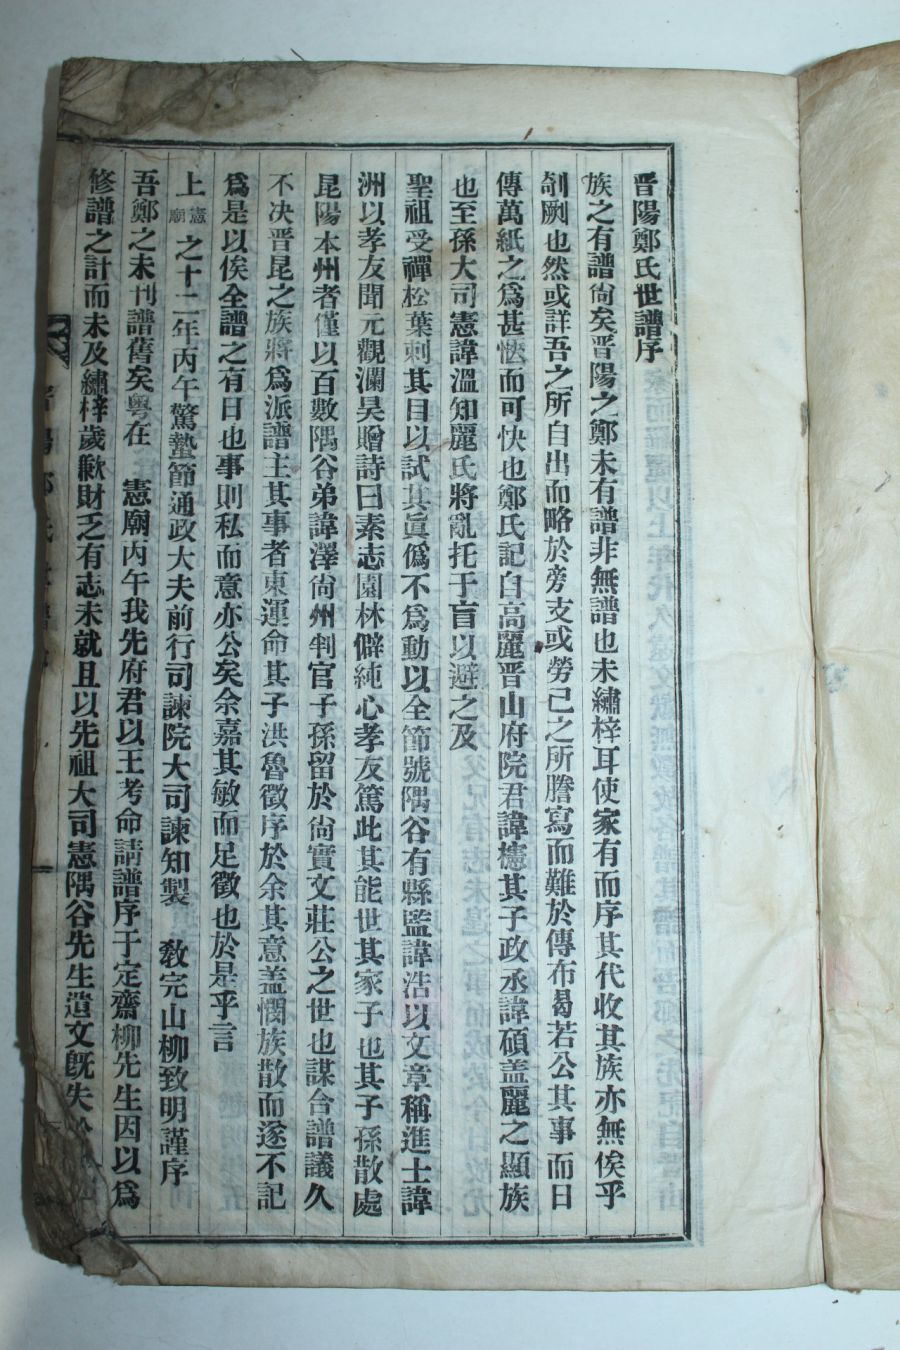 晋陽鄭氏世譜序
族之有譜尙矣晋陽之鄭未有譜非無譜也未繡梓耳使家有而序其代收其族亦無俟乎
剞劂也然或詳吾之所自出而略於旁支或勞己之所謄寫而難於傳布曷若公其事而日
傳萬紙之爲甚愜而可快也鄭氏記自高麗晋山府院君諱櫶其子政丞諱碩盖麗之顯族
也至孫大司憲諱溫知麗氏將亂托于盲以避之及
聖祖受禪松葉刺其目以試其眞僞不爲動以全節號隅谷有縣監諱浩以文章稱進士諱
洲以孝友聞元觀瀾昊贈詩曰素志園林僻純心孝友篤此其能世其家子也其子孫散處
昆陽本州者僅以百數隅谷弟諱澤尙州判官子孫留於尙實文莊公之世也謀合譜議久
不决晋昆之族將爲派譜主其事者東運命其子洪魯徵序於余其意盖憫族散而遂不記
爲是以俟全譜之有日也事則私而意亦公矣余嘉其敏而足徵也於是乎言
上憲廟之十二年丙午驚蟄節通政大夫前行司諫院大司諫知製 敎完山柳致明謹序
吾鄭之未刊譜舊矣粤在 憲廟丙午我先府君以王考命請譜序于定齋柳先生因以爲
修譜之計而未及繡梓歲歉財乏有志未就且以先祖大司憲隅谷先生遺文旣失